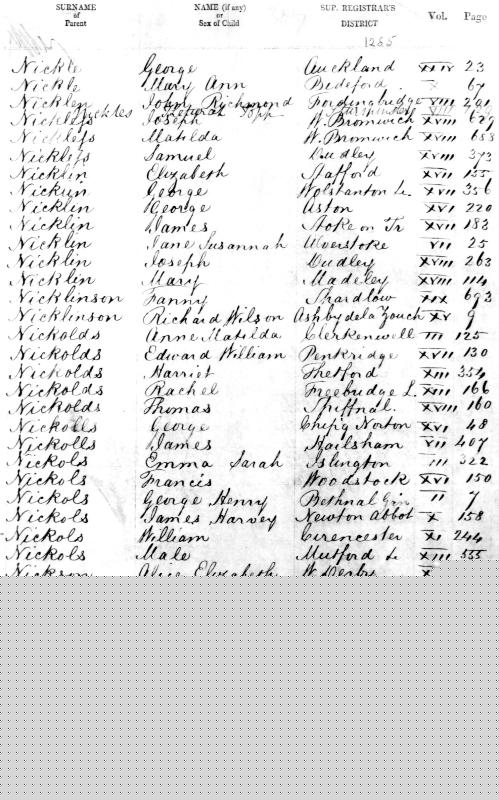 SURNAME of Parent NAME (if any) or Sex of Child SUP. REGISTRAR'S DISTRICT Vol. Page
1265
Nickle George Auckland XXIV 23
Nickle Mary Ann Bideford X 67
Nicklen John Richmond Fordingbridge VIII 291
Nickless Joseph W. Bromwich XVIII 629
Nickless Matilda W. Bromwich XVIII 653
Nickless Samuel Dudley XVIII 373
Nicklin Elizabeth Stafford XVII 155
Nicklin George Wolstanton &c. XVII 356
Nicklin George Aston XVI 220
Nicklin James Stoke on Tr XVII 183
Nicklin Jane Susannah Alverstoke VII 25
Nicklin Joseph Dudley XVIII 263
Nicklin Mary Madeley XVIII 114
Nicklinson Fanny Shardlow XIX 693
Nicklinson Richard Wilson Ashby de la Zouch XV 9
Nickolds Anne Matilda Clerkenwell III 125
Nickolds Edward William Penkridge XVII 130
Nickolds Harriet Thetford XIII 554
Nickolds Rachel Freebridge L. XIII 166
Nickolds Thomas Shiffnal. XVIII 160
Nickolls George Chipg Norton XVI 48
Nickolls James Hailsham VII 407
Nickols Emma Sarah Islington III 322
Nickols Francis Woodstock XVI 150
Nickols George Henry Bethnal Grn II 7
Nickols James Harvey Newton Abbot X 158
Nickols William Cirencester XI 244
Nickols Male Mutford &c XIII 555
Nickson Alice Elizabeth W. Derby X